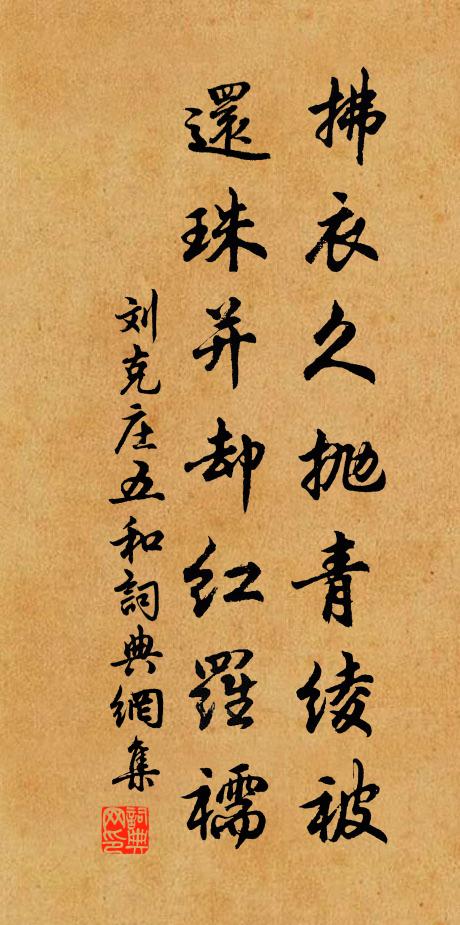 拂衣久抛青绫被
還珠并却红羅襦
刘克庄五和詞典網集
詞典网印